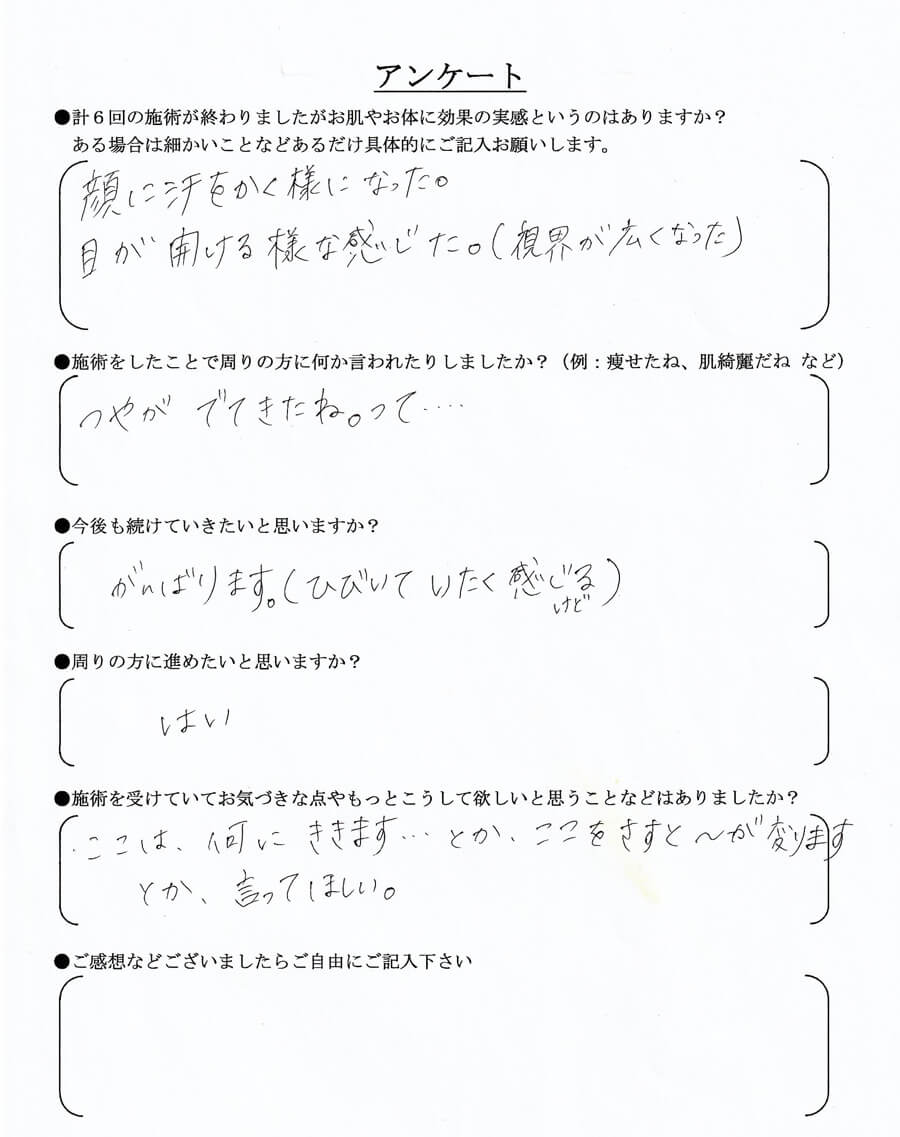 アンケート
●計６回の施術が終わりましたがお肌やお体に効果の実感というのはありますか？
ある場合は細かいことなどあるだけ具体的にご記入お願いします。
顔に汗をかく様になった。
目が開ける様な感じた。（視界が広くなった）
●施術をしたことで周りの方に何か言われたりしましたか？（例：痩せたね、肌綺麗だね など）
つやが でてきたね。って‥‥
●今後も続けていきたいと思いますか？
がんばります。（ひびいて いたく 感じる）
けど
●周りの方に進めたいと思いますか？
はい
●施術を受けていてお気づきな点やもっとこうして欲しいと思うことなどはありましたか？
・ここは、何に ききます… とか、ここを さすと 〜が変ります
とか、言ってほしい。
●ご感想などございましたらご自由にご記入下さい